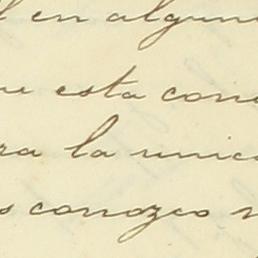 l en algun
ue esta cono
ra la unica
s conozco n